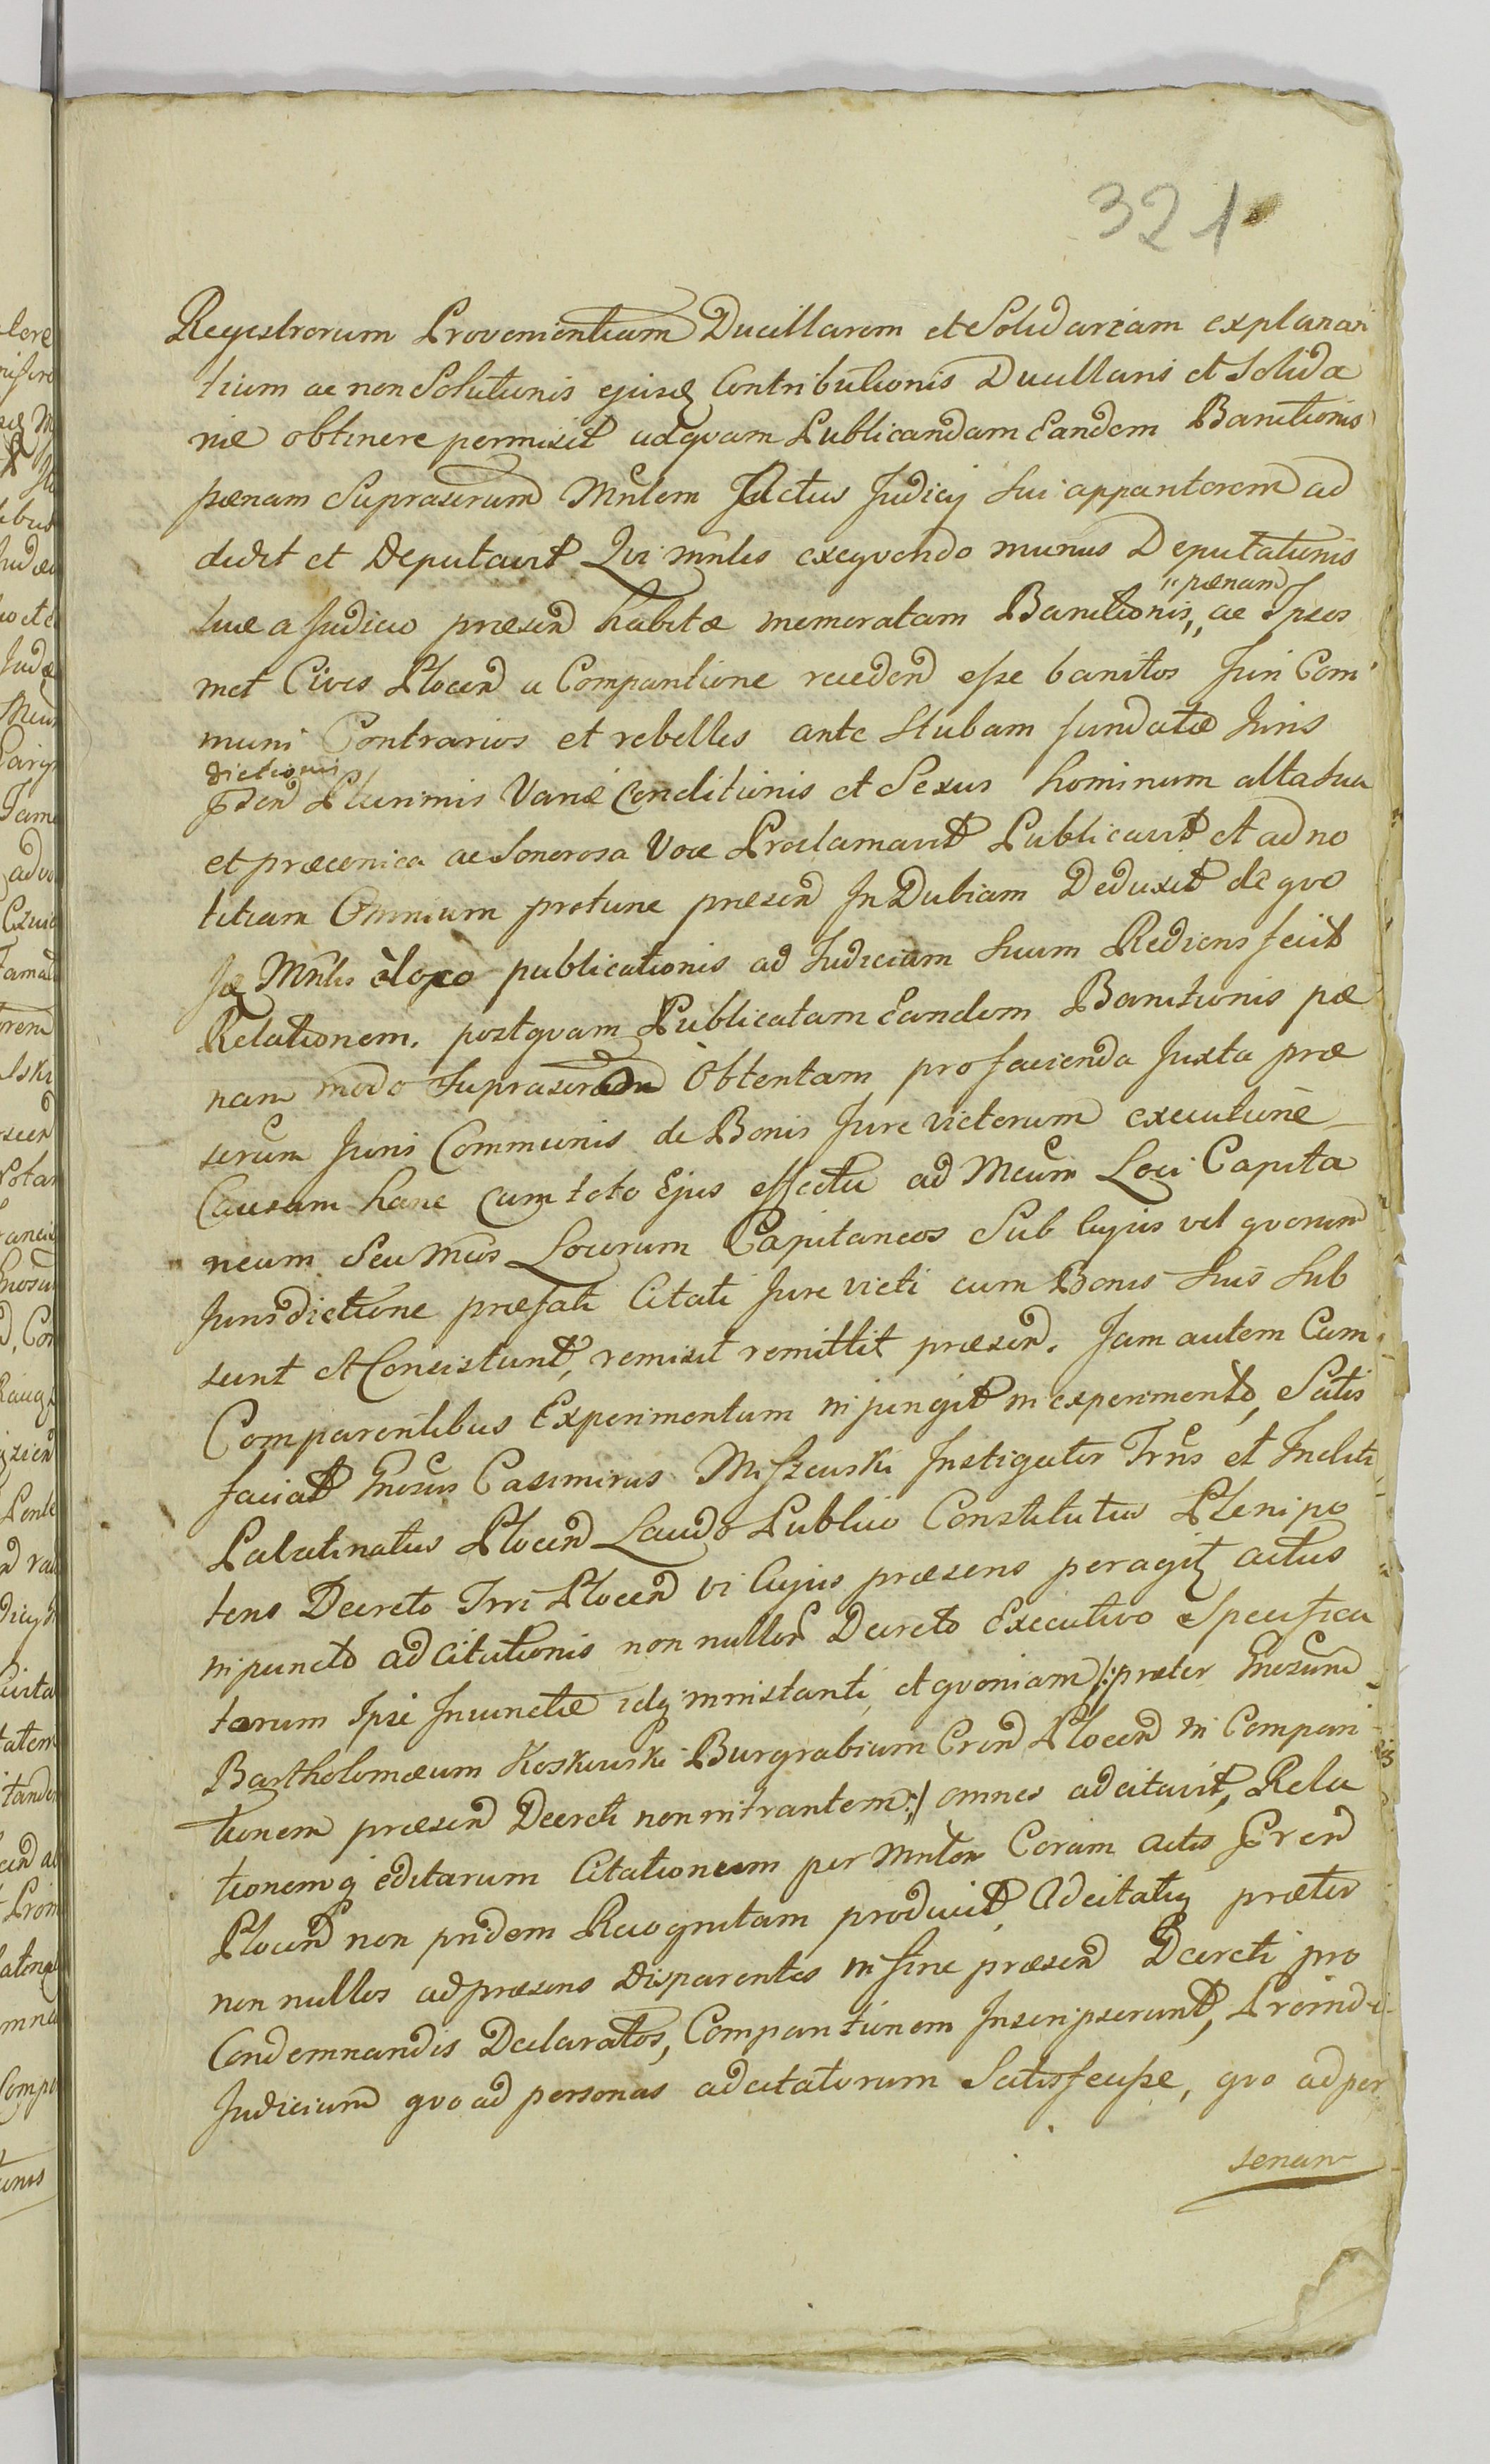 321
Registrorum Provenientium Ducillarem et Solidariam explanan
tium ac non Solutionis ejusq Contributionis Ducillaris et Solida
riæ obtinere permisit adqvam Publicandam Eandem Banitionis
pænam Suprascrum Mnlem Actus Judicij Sui apparitorem ad
didit et Deputavit Qvi mnlis exeqvendo munus Deputationis
suæ a Judicio præsen habitæ memoratam Banitionis,, ac Ipsos
"pænam
met Cives Plocen a Comparitione receden esse banitos Juri Com
muni Contrarios et rebelles ante Stubam fundatæ Juris
dictionis
Plurimis Variæ Conditionis et Sexus hominum alta sua
et præconica ac Sonorosa Voce Proclamavit Publicavit et ad no
titiam Omnium protunc præsen In Dubiam Deduxit de qvo
Mnlis èloco publicationis ad Judicium Suum Rediens fecit
Relationem. postqvam Publicatam Eandem Banitionis pæ
nam modo Obtentam pro facienda Juxta præ
scrum Juris Communis de Bonis Jure victorum executione
Causam hanc Cum toto Ejus effectu ad Mcum Loci Capita
neum Seu Mcos Locorum Capitaneos Sub Cujus vel qvorum
Jurisdictione præfati Citati Jure victi cum Bonis Suis Sub
sunt et Concistunt, remisit remittit præsen. Jam autem Cum
Comparentibus Experimentum injungit in experimento, Satis
faciat Gnosus Casimirus Miszewski Instigator Trris et Incliti
Palatinatus Plocen Laudo Publico Constitutus Plenipo
tens Decreto Trri Plocen vi Cujus præsens peragit actus
in puncto ad Citationis non nullor Decreto Executivo Specifica
torum Ipsi Injunctæ idq innistanti, et qvoniam /:præter Gnosum
Bartholomæum Koskowski Burgrabium Cren Plocen in Compari
tionem præsen Decreti non intrantem:/ omnes adcitavit, Rela
tionemq editarum Citationum per Mnlem Coram Actis
Plocen non pridem Recognitam producit, Adcitatiq præter
non nullos ad præsens Disparentes in fine præsen Decreti pro
Condemnandis Declaratos, Comparitionem Inscripserunt, Proinde
Judicium qvo ad personas adcitatorum Satisfecisse, qvo ad per
sonam